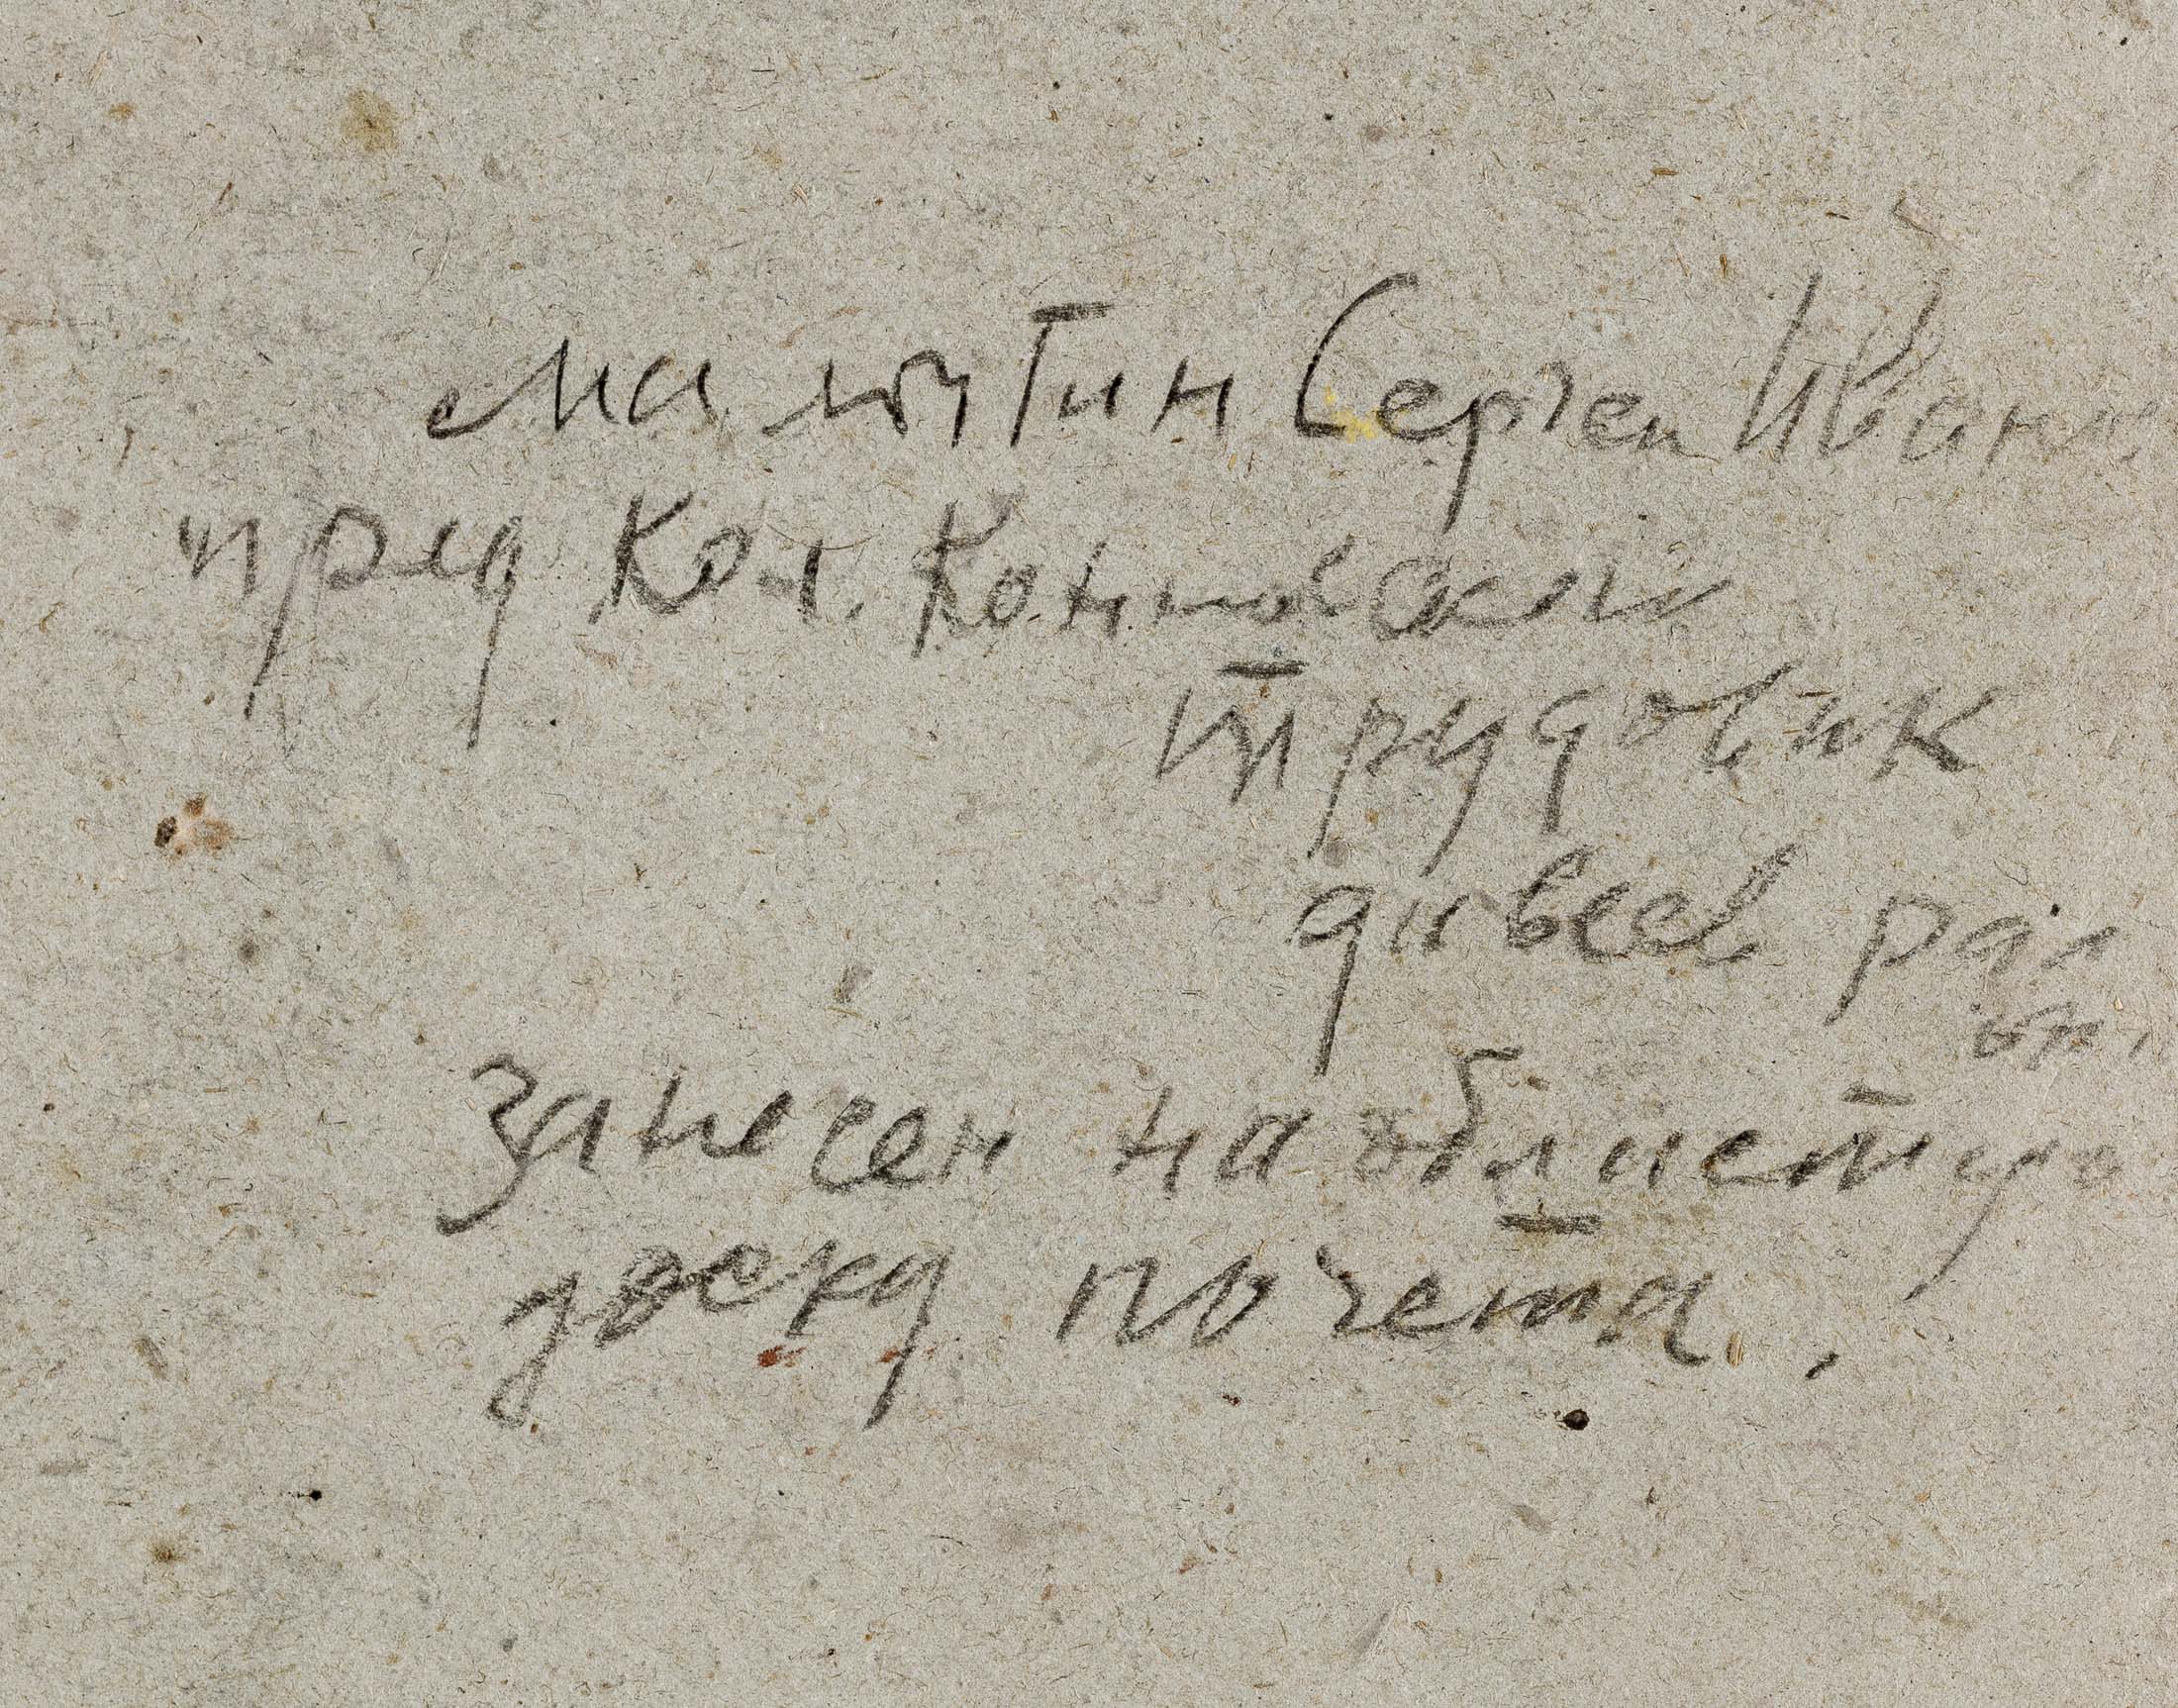 Малютин Сергеи Иван
пред Кол.
трудовик
дивеев рай
он.
занесен на областую
доску почета.